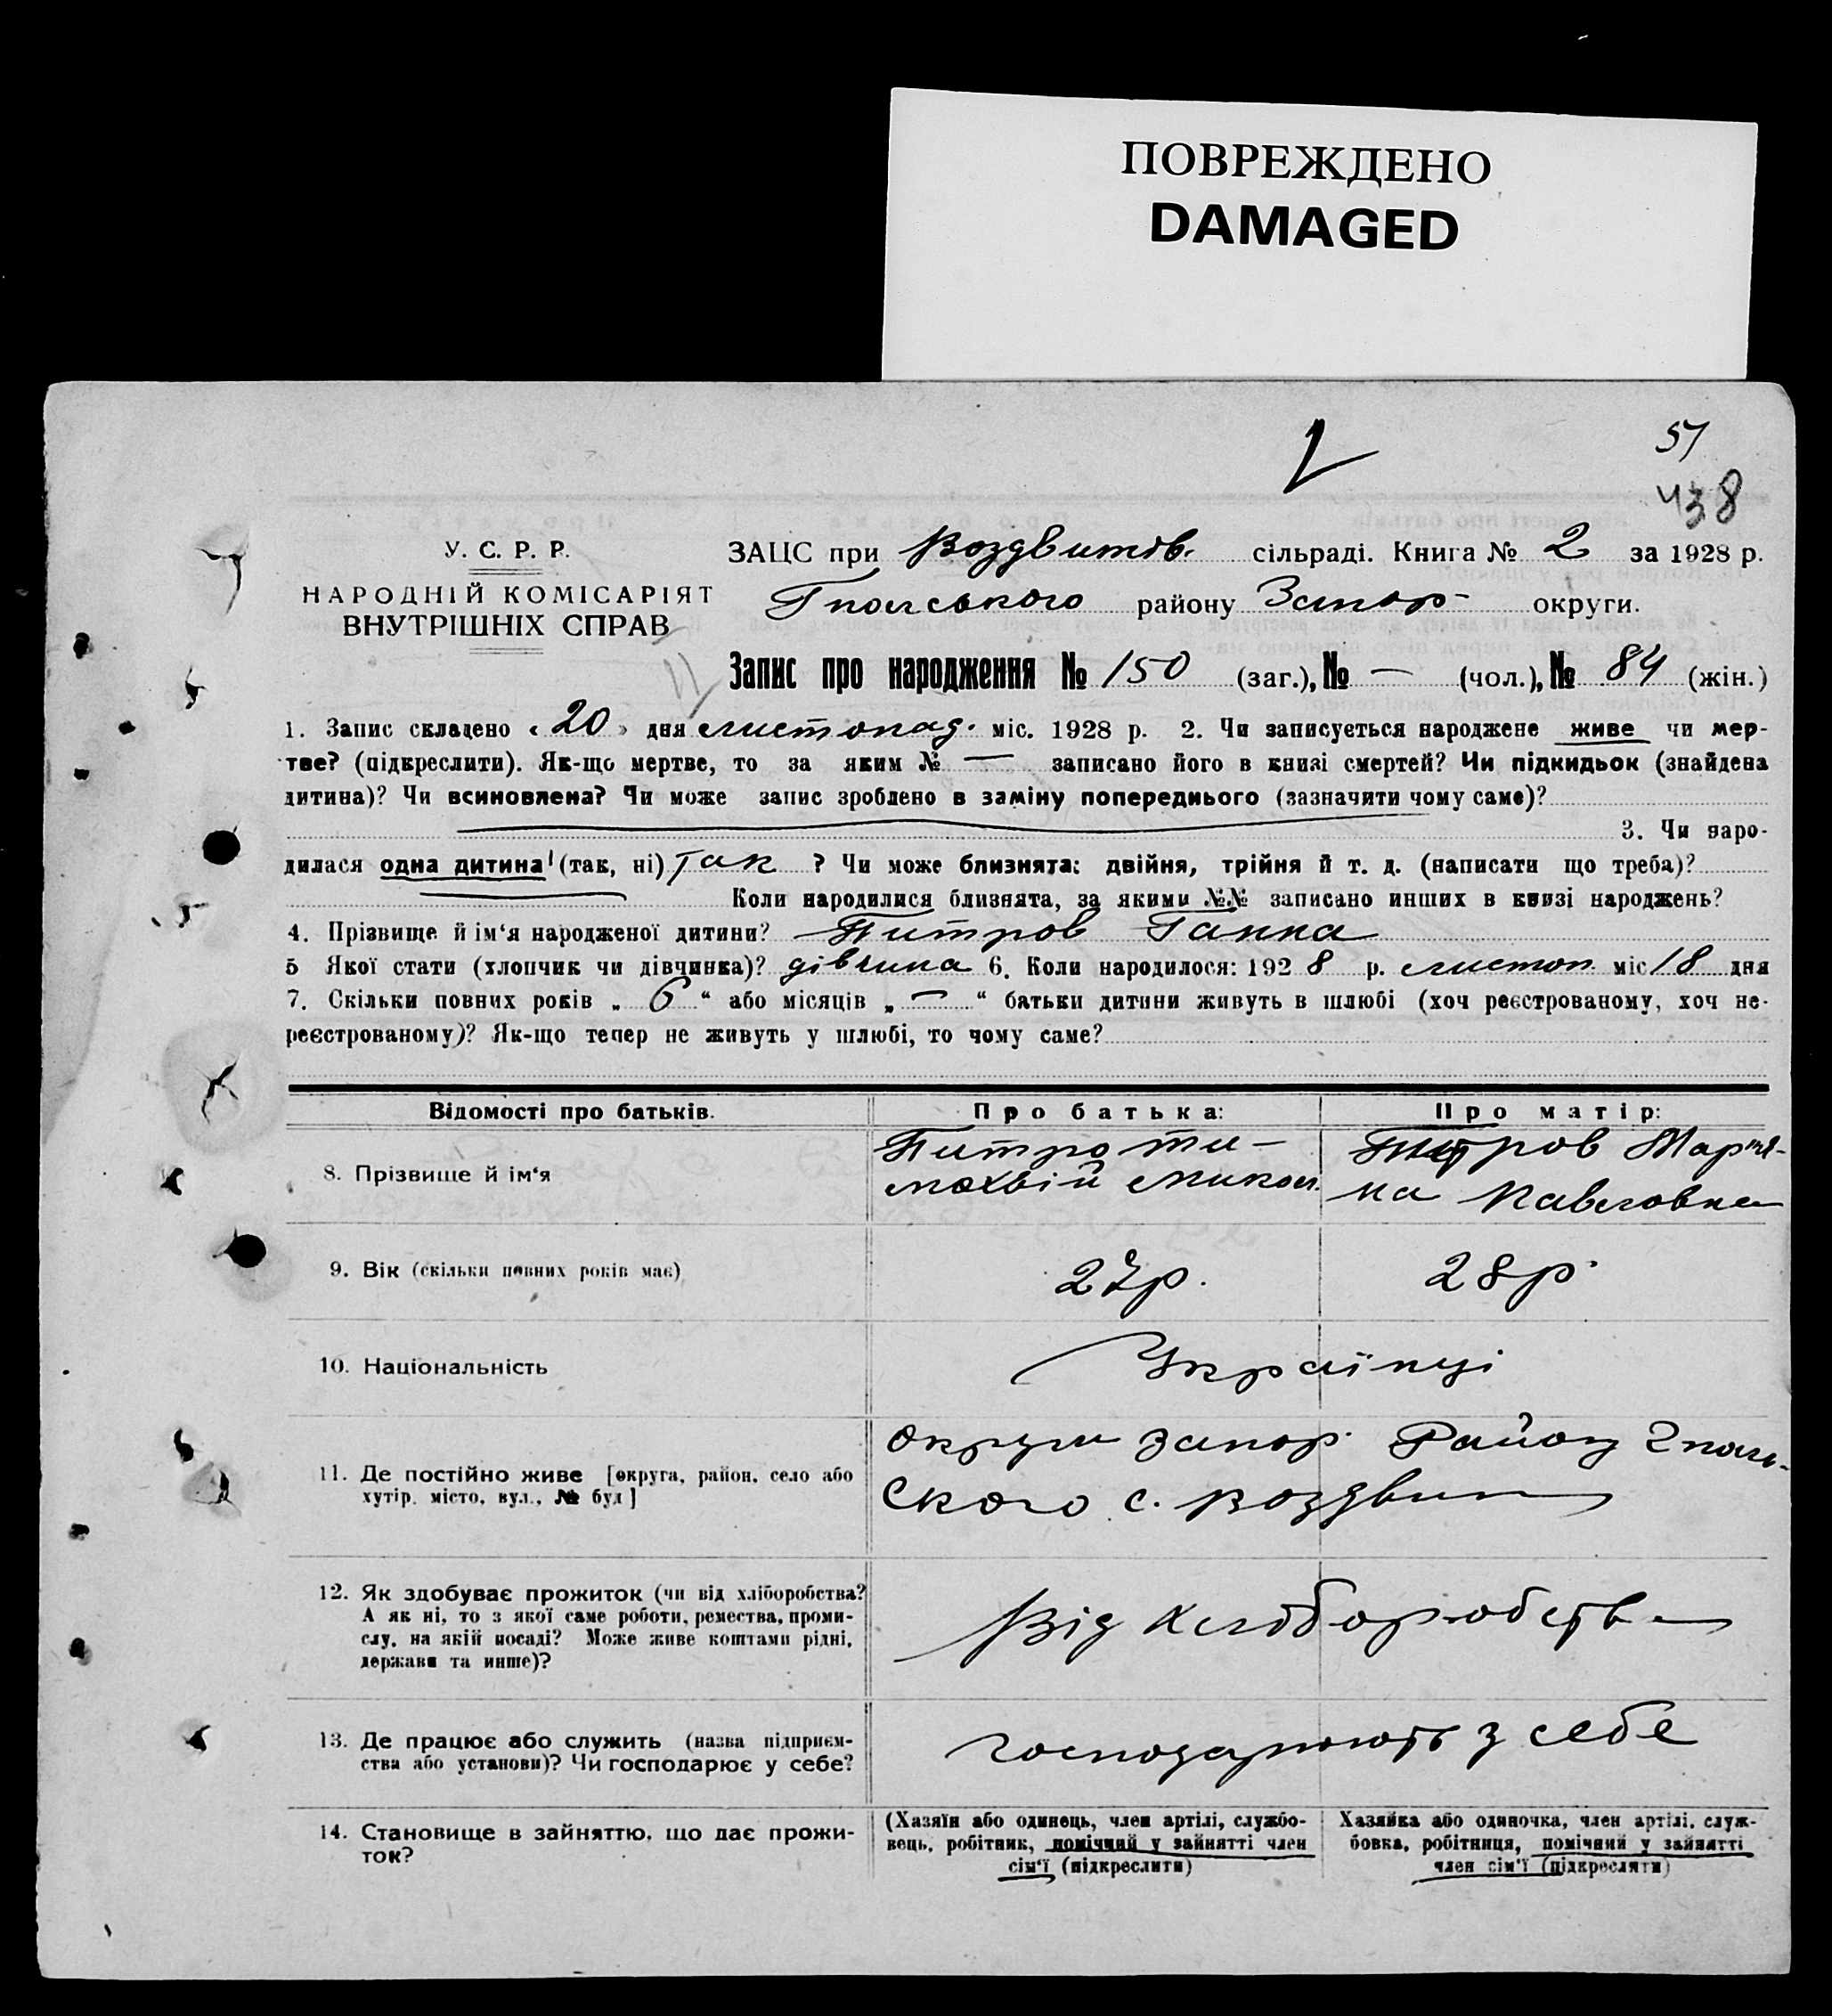 ПОВРЕЖДЕНО
DAMAGED
51
438
У. С. Р. Р.
НАРОДНІЙ КОМІСАРІЯТ
ВНУТРІШНІХ СПРАВ
ЗАЦС при Воздвитів. сільраді. Книга № 2 за 1928 р.
Гполського району Запор- округи.
Запис про народження № 150 (заг.), № — (чол.), № 84 (жін.)
1. Запис складено « 20 » дня листопад. міс. 1928 р. 2. Чи записується народжене живе чи мер-
тве? (підкреслити). Як-що мертве, то за яким № — записано його в книзі смертей? Чи підкидьок (знайдена
дитина)? Чи всиновлена? Чи може запис зроблено в заміну попереднього (зазначити чому саме)?
3. Чи наро-
дилася одна дитина (так, ні) Так ? Чи може близнята: двійня, трійня й т. д. (написати що треба)?
Коли народилися близнята, за якими №№ записано инших в книзі народжень?
4. Прізвище й ім‘я народженої дитини? Питров Ганна
5 Якої стати (хлопчик чи дівчинка)? дівчина 6. Коли народилося: 1928 р. листоп. міс 18 дня
7. Скільки повних років „ 6 “ або місяців „ — “ батьки дитини живуть в шлюбі (хоч реєстрованому, хоч не-
реєстрованому)? Як-що тепер не живуть у шлюбі, то чому саме?
Відомості про батьків. Про батька: Про матір:
8. Прізвище й ім‘я
Питро ти-
мохвій Микол.
Питров Мар'я-
на Павловна
9. Вік (скільки повних років має) 27р. 28р.
10. Національність Українці
11. Де постійно живе [округа, район, село або
хутір, місто, вул., № буд]
округи Запор. Району Гполь-
ского с. Воздвин
12. Як здобуває прожиток (чи від хліборобства?
А як ні, то з якої саме роботи, ремества, проми-
слу, на якій посаді? Може живе коштами рідні,
держави та инше)?
Від хліборобства
13. Де працює або служить (назва підприєм-
ства або установи)? Чи господарює у себе?
господарюють з себе
14. Становище в зайняттю, що дає прожи-
ток?
(Хазяїн або одинець, член артілі, службо-
вець, робітник, помічний у зайнятті член
сім‘ї (підкреслити)
Хазяйка або одиночка, член артілі, служ-
бовка, робітниця, помічний у зайнятті
член сім‘ї (підкреслити)